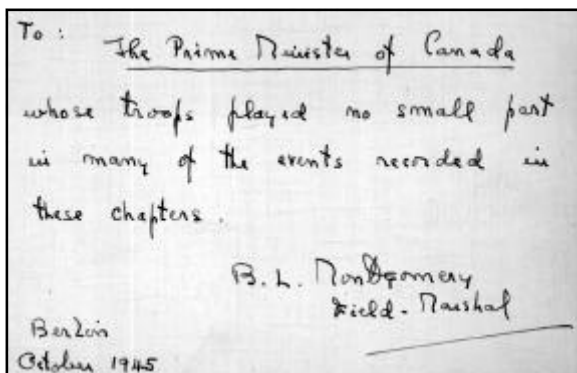 To :
The Prime Minister of Canada
whose troops played no small part
in many of the events recorded in
these chapters.
B. L. Montgomery
Field-Marshal
Berlin
October 1945